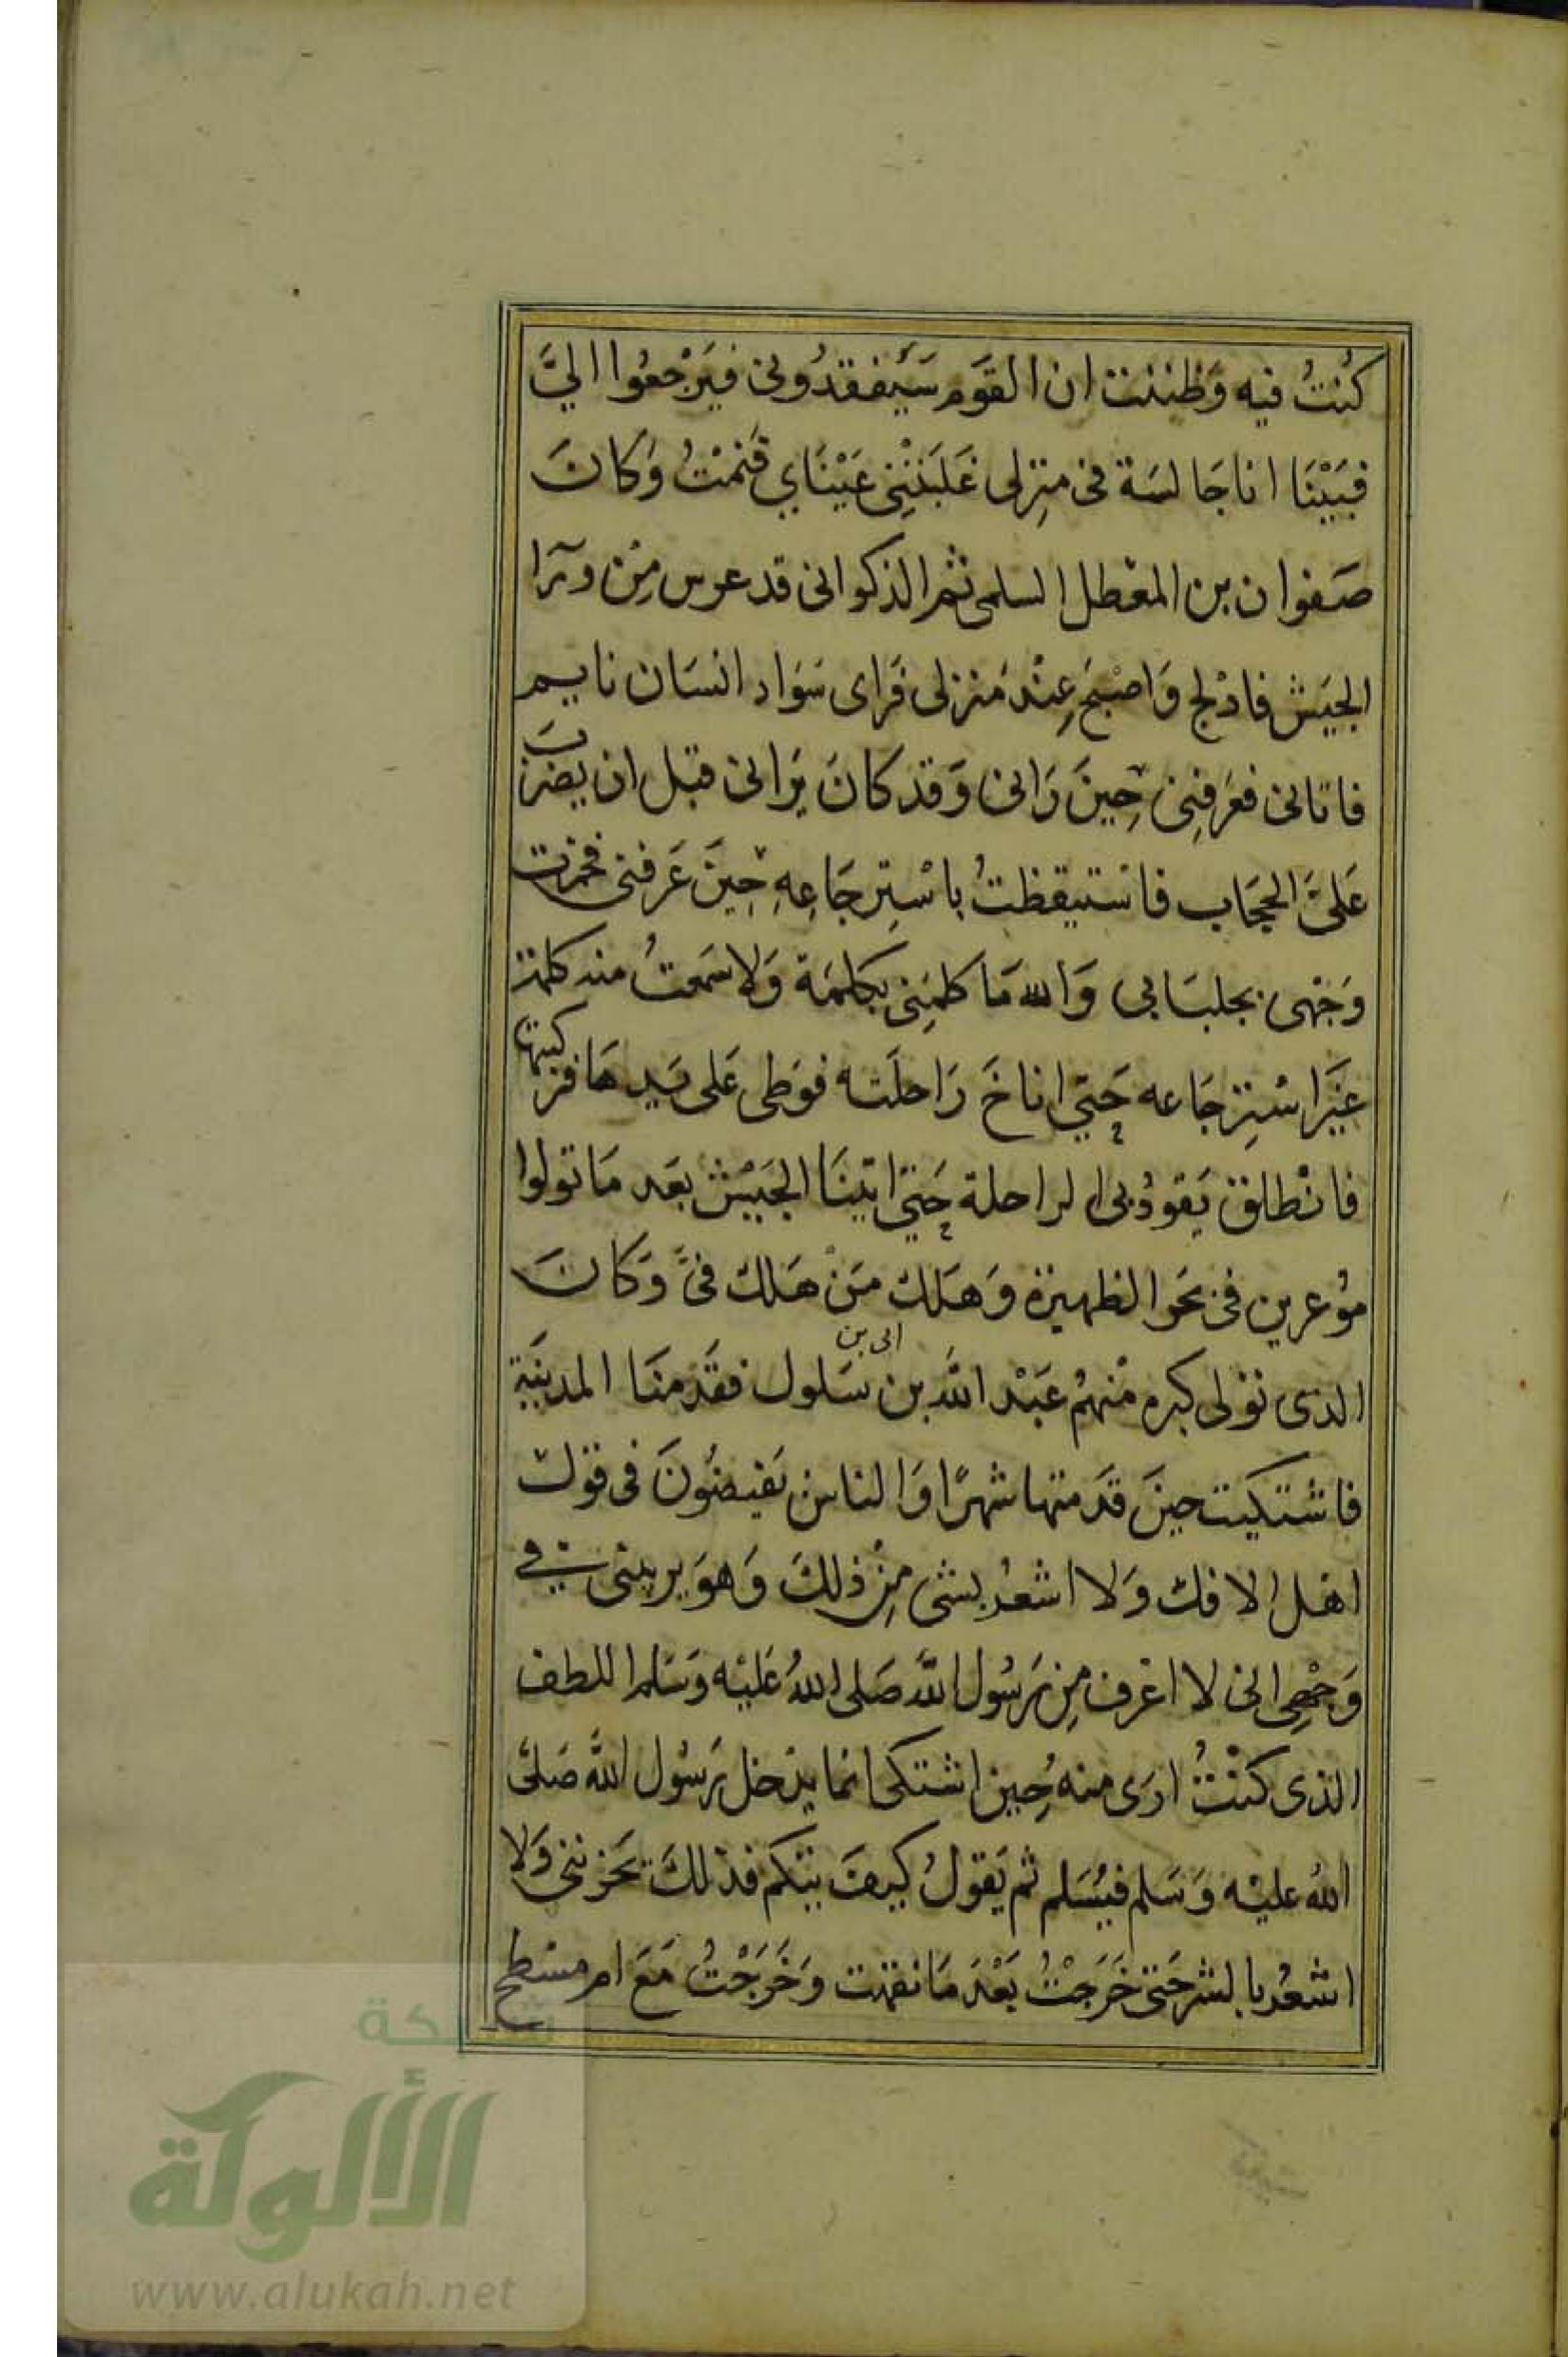 كُنتُ فيه وَظننت ان القوَم سَيَفقدُونى فيَرْجعُوا اليَّ
فبَيْنَا انا جَالسَة فى منزِلى غَلبَتْنِى عَيْنَاي فَنمْتُ وَكانَ
صَفوان بن المعَطل السلمى ثمر الذكوانى قد عرس مِن ورَآ
الجيَش فادْلج وَاصْبَح عِنْدَ مَنزلى فَراى سَوَاد انسَان نايم
فاتانى فعَرفنِى حِينَ رَانى وَقد كانَ يَرانى قبل ان يضربَ
عَلىَّ الحِجَاب فاسْتيقظتُ باسْتِرجَاعِهِ حِينَ عَرفنى فخمرت
وَجْهى بجلبَابى وَالله مَا كلمَنِى بكلمَة وَلا سَمعتُ منه كلمة
غيَر اسْتِرجَاعه حَتي اناخَ رَاحلَته فوَطى عَلى يَديهَا فركبتها
فانْطلق يَقودُ بى الراحلة حَتي اتينَا الجَيْش بعَد مَا تولوا
مؤعرين فى نحَو الظهيرة وَهَلك مَنْ هَلك فىَّ وَكانَ
الذى تولى كبره منْهُم عَبْد الله بن ابى بن سَلول فقَدمنَا المدينَة
فاشتكيت حينَ قدَمتها شهرًا وَالناس يَفيضُونَ فى قوَل
اهْل الافك وَلا اشعُر بشى مِنْ ذلكَ وَهوَ يريبنى فى
وَجَعِى انى لا اعْرف مِن رَسُول اللهَ صَلى اللهُ عَليْه وَسَلم اللطف
الذى كنْتُ ارَى منه حِين اشتكى انما يدْخل رَسُول اللهَ صَلىَّ
اللهُ عليْه وَسَلم فيُسَلم ثم يَقولُ كيفَ تيكم فذلكَ يحَزننى وَلا
اشعُر بالشر حَتى خَرَجْتُ بَعْدَ مَا نقهت وَخَرَجْتُ مَعَ ام مسْطح
شبكة
الألوكة
www.alukah.net